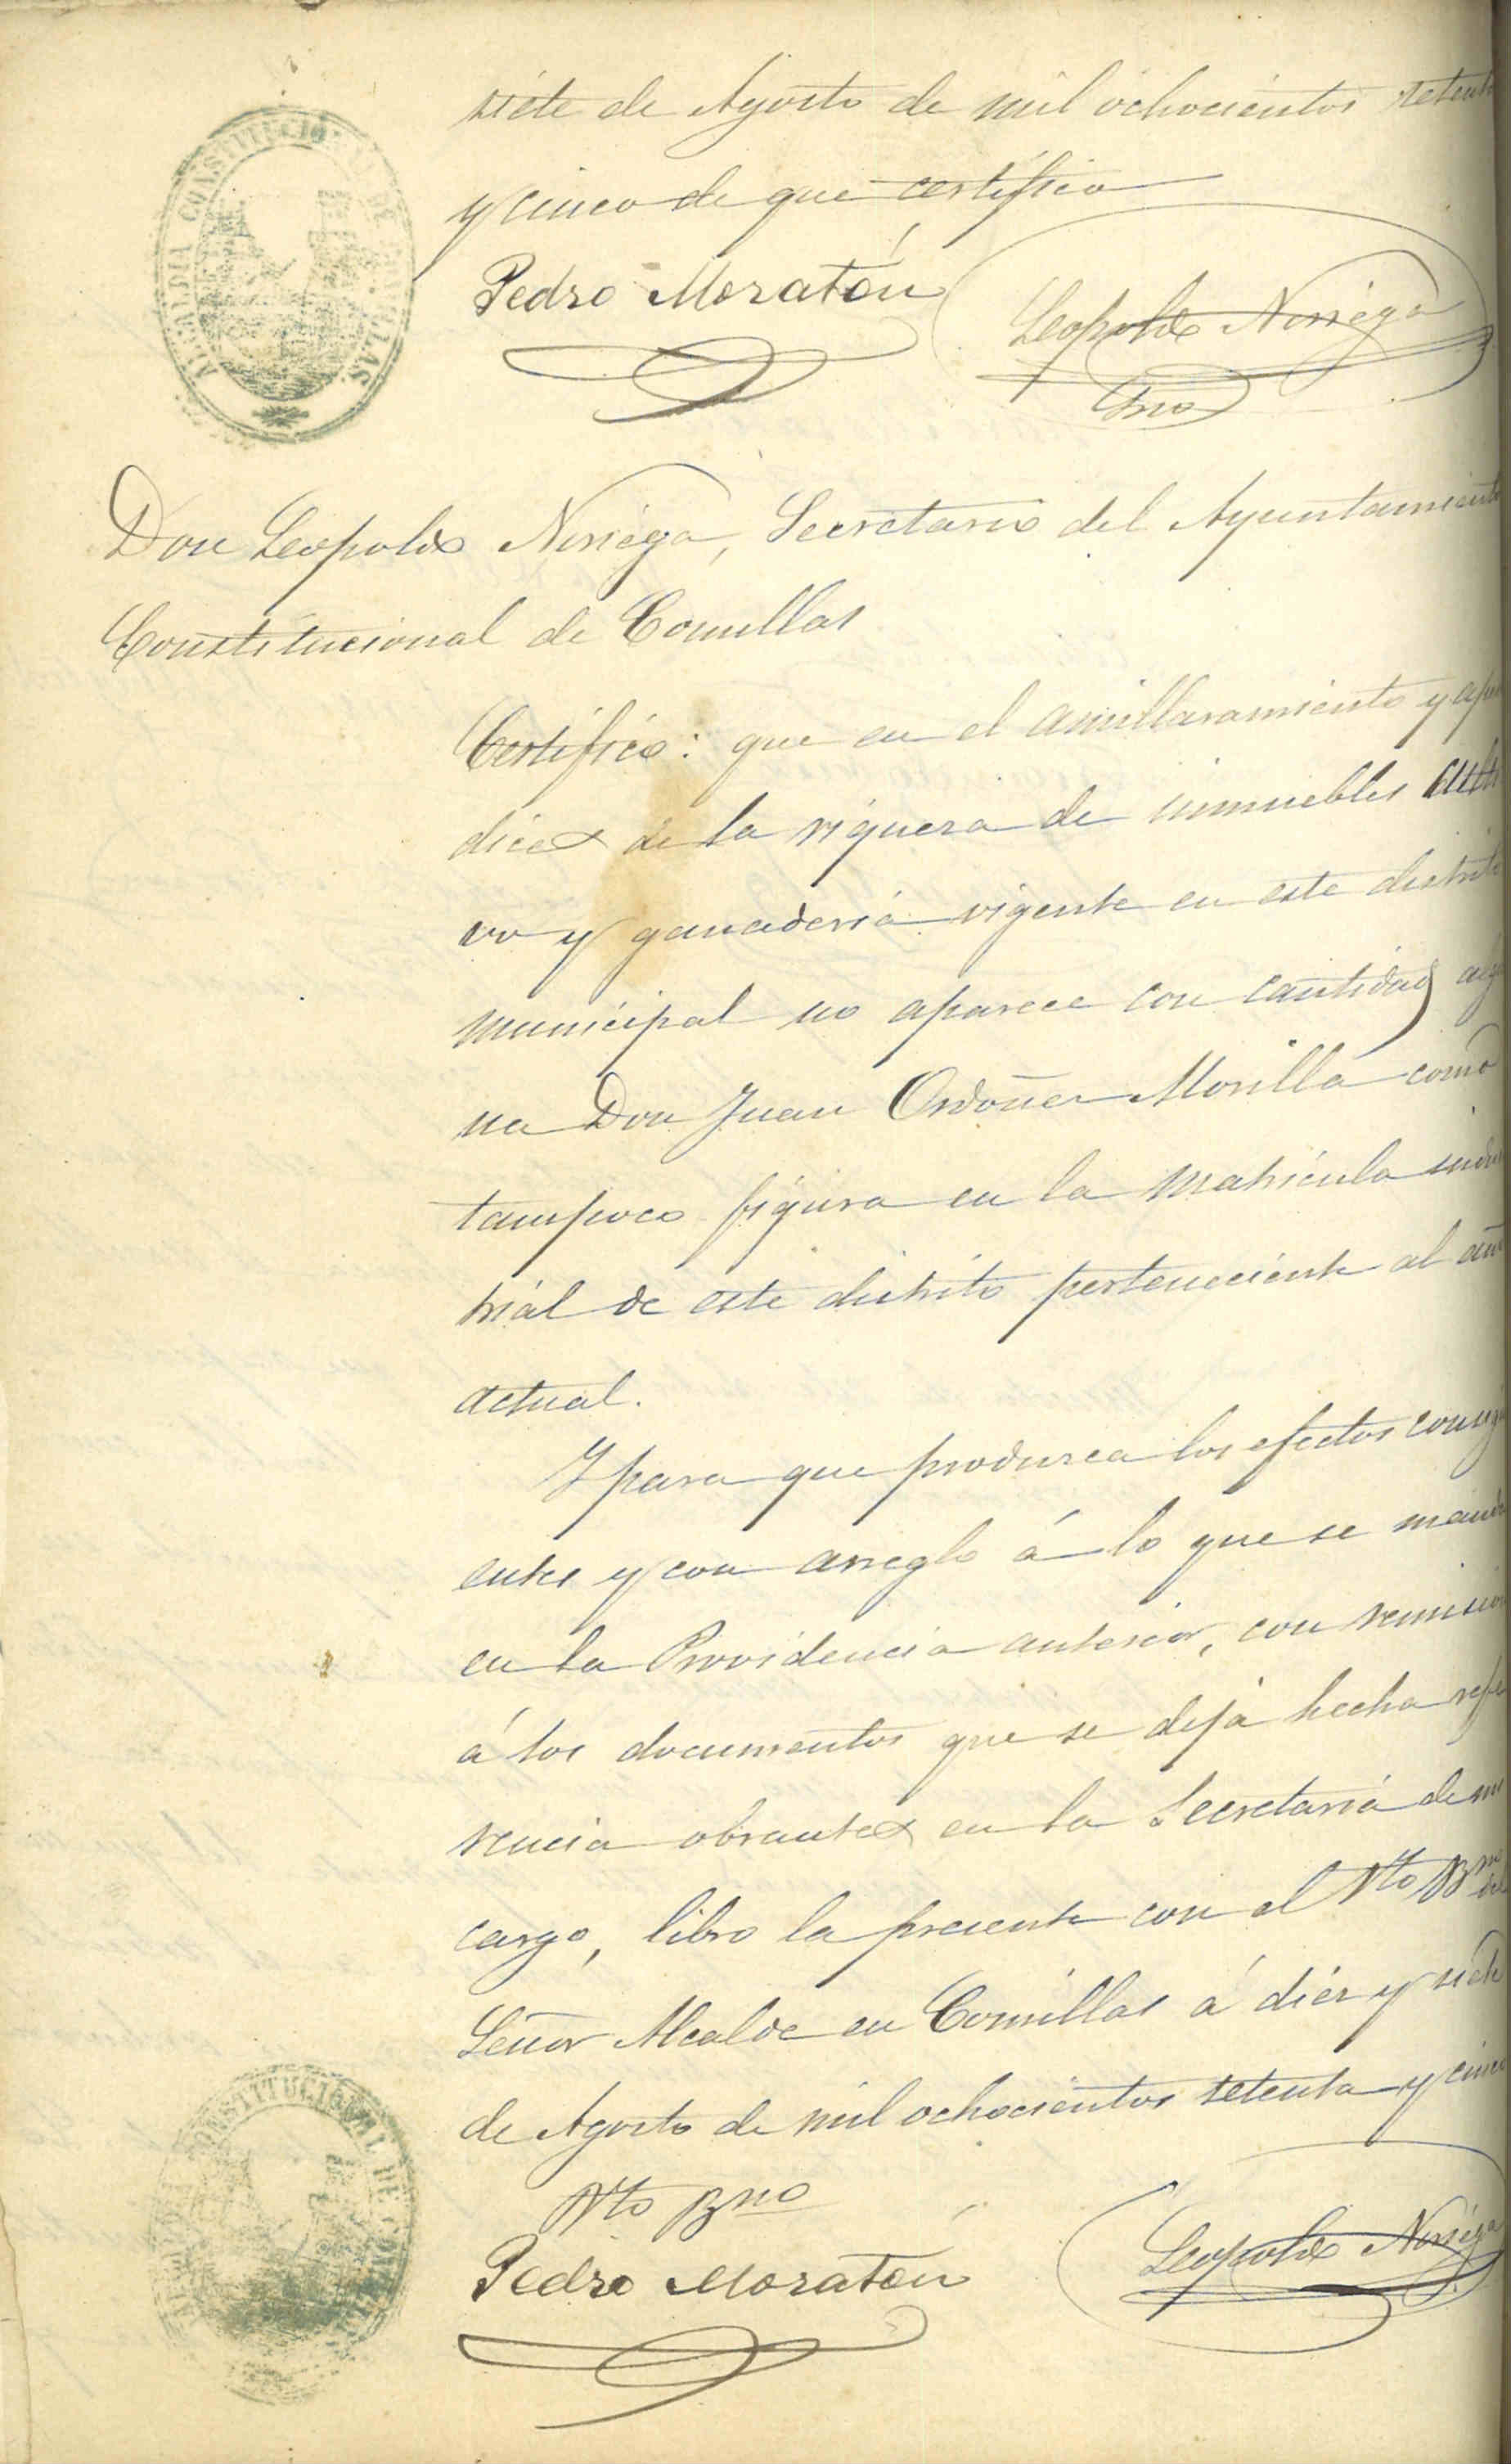 siete de Agosto de mil ochocientos setenta
y cinco de que certifico
ALCALDIA CONSTITUCIONAL DE COMILLAS.
Pedro Moratón
Leopoldo Noriega
Srio
Don Leopoldo Noriega, Secretario del Ayuntamiento
Constitucional de Comillas
Certifico: que en el amillaramiento y apen
dices de la riqueza de inmuebles culti
vo y ganaderiá vigente en este distrito
municipal no aparece con cantidad algu
na Don Juan Ordoñez Morilla como
tampoco figura en la matricula indus
trial de este distrito perteneciente al año
actual.
Y para que produzca los efectos consigui
entes y con arreglo á lo que se manda
en la Providencia anterior, con remision
á los documentos que se deja hecha refe
rencia obrantes en la Secretaria de mi
cargo, libro la presente con el Vto Bno del
Señor Alcalde en Comillas á diez y siete
de Agosto de mil ochocientos setenta y cinco
Vto Bno
ALCALDIA CONSTITUCIONAL DE COMILLAS
Pedro Moratón
Leopoldo Noriega